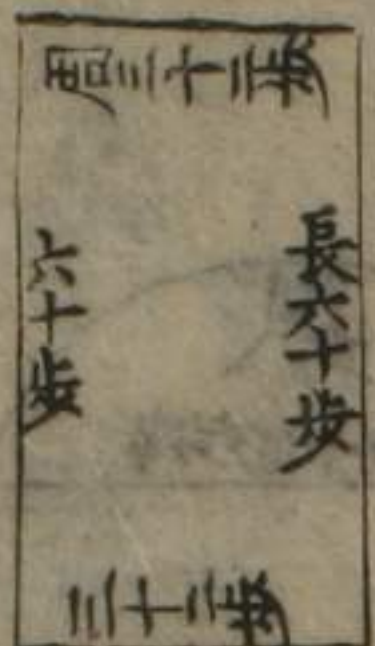 三十二步
長六十步
六十步
三十二步